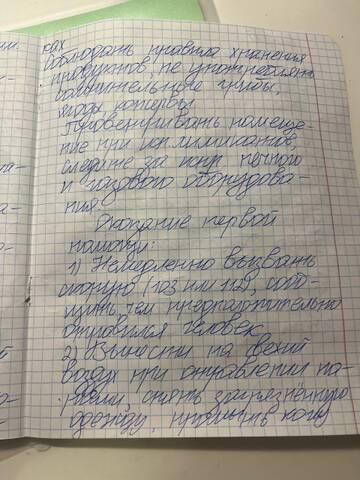 рах
соблюдать правила хранения
продуктов, не употреблять
сомнительные грибы,
ягоды консервы
Проветривать помеще-
ние при исп. химикатов,
следить за испр. печного
и газового оборудова-
ния.
Оказание первой
помощи:
1) Немедленно вызвать
скорую (103 или 112), сооб-
щить чем предположительно
отравился человек
2) Вынести на свежий
воздух при отравлении па-
рами, снять загрязнённую
одежду, промыть кожу